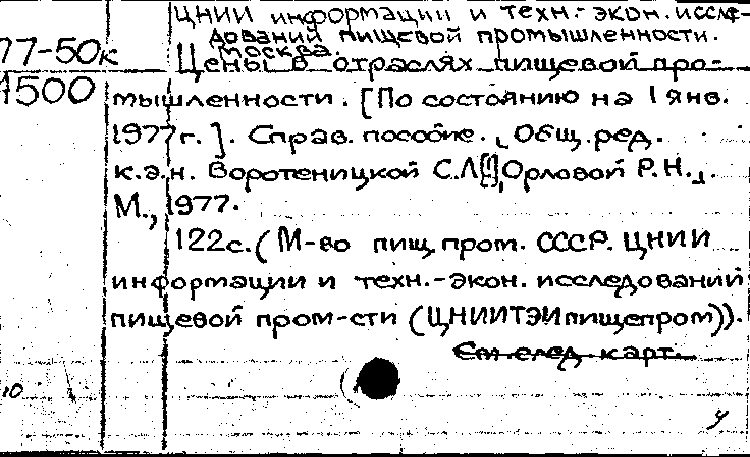 ЦНИИ информации и техн.-экон. иссле-
дований пищевой промышленности.
Москва.
77-50к
Цены в отраслях пищевой про-
1500
мышленности. [По состоянию на 1 янв.
1977г.]. Справ. пособие. Общ. ред.
к.э.н. Воротеницкой С.Л[], Орловой Р.Н.
М., 1977.
122с. (М-во пищ. пром. СССР. ЦНИИ
информации и техн.-экон. исследований
пищевой пром-сти (ЦНИИТЭИпищепром)).
См. след. карт.
10
у